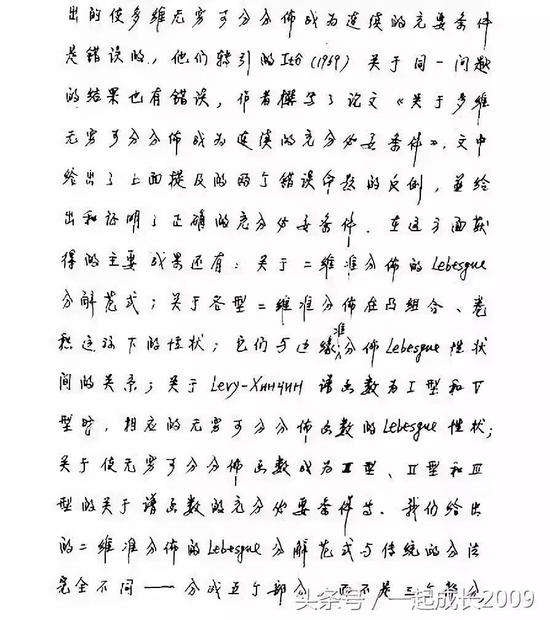 出的使多维无穷可分分佈成为连续的充要条件
是错误的。他们转引的Itô(1969)关于同一问题
的结果也有错误，作者撰写了论文《关于多维
无穷可分分佈成为连续的充分必要条件》。文中
给出了上面提及的两个错误命题的反例，並给
出和证明了正确的充分必要条件。在这方面获
得的主要成果还有：关于二维准分佈的Lebesgue
分解范式；关于各型二维准分佈在凸组合、卷
积运祘下的性状；它们与边缘准分佈Lebesgue性状
间的关系；关于Levy-Хинчин谱函数为Ⅰ型和Ⅴ
型时，相应的无穷可分分佈函数的Lebesgue性状；
关于使无穷可分分佈函数成为Ⅱ型、Ⅱ型和Ⅲ
型的关于谱函数的充分必要条件等。我们给出
的二维准分佈的Lebesgue分解范式与传统的分法
完全不同——分成五个部分，而不是三个部分
头条号/一起成长2009